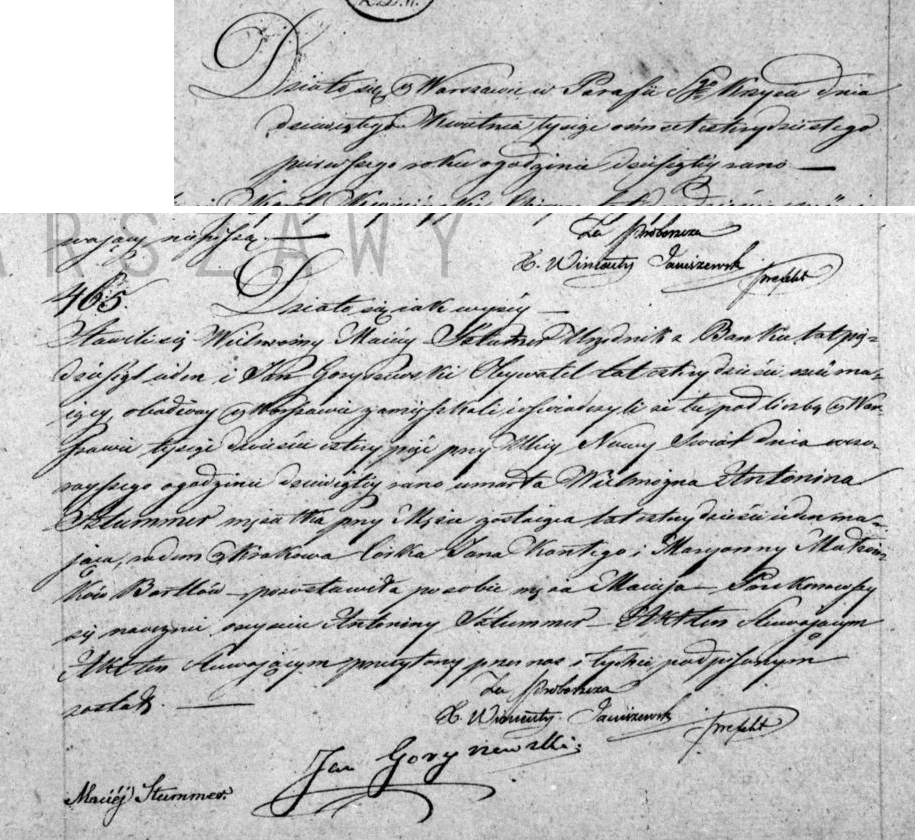 Działo się w Warszawie w Parafii Sgo Krzyża dnia
dziewiątego Kwietnia tysiąc ośmset czterdziestego
pierwszego roku o godzinie dziesiątej rano —
wający niepiszą. —
Za Proboszcza
X. Wincenty Janiszewsk prefekt
WARSZAWY
465.
Działo się jak wyżej —
Stawili się Wielmożny Maciej Sztummer Urzędnik z Banku lat pię-
dziesiąt ieden i Jan Goryszewski Obywatel lat czterdzieści ma-
iący, obadway w Warszawie zamieszkali i oświadczyli że tu pod liczbą w War-
szawie tysiąc dwieście cztery przy Ulicy Nowy Świat dnia wczo-
rayszego o godzinie dziewiątej rano umarła Wielmożna Antonina
Sztummer mężatka przy Mężu zostaiąca lat czterdzieści ieden ma-
jąca, rodem z Krakowa Córka Jana Kantego i Maryanny Małżon-
ków Bartlów — pozostawiła po sobie męża Macieja — Przekonawszy
się naocznie o zejściu Antoniny Sztummer — Akt ten Stawającym
Akt ten Stawającym przeczytany przez nas i tychże podpisanym
został. —
Za Proboszcza
X. Wincenty Janiszewsk prefekt
Jan Goryszewski
Maciéj Stummer.